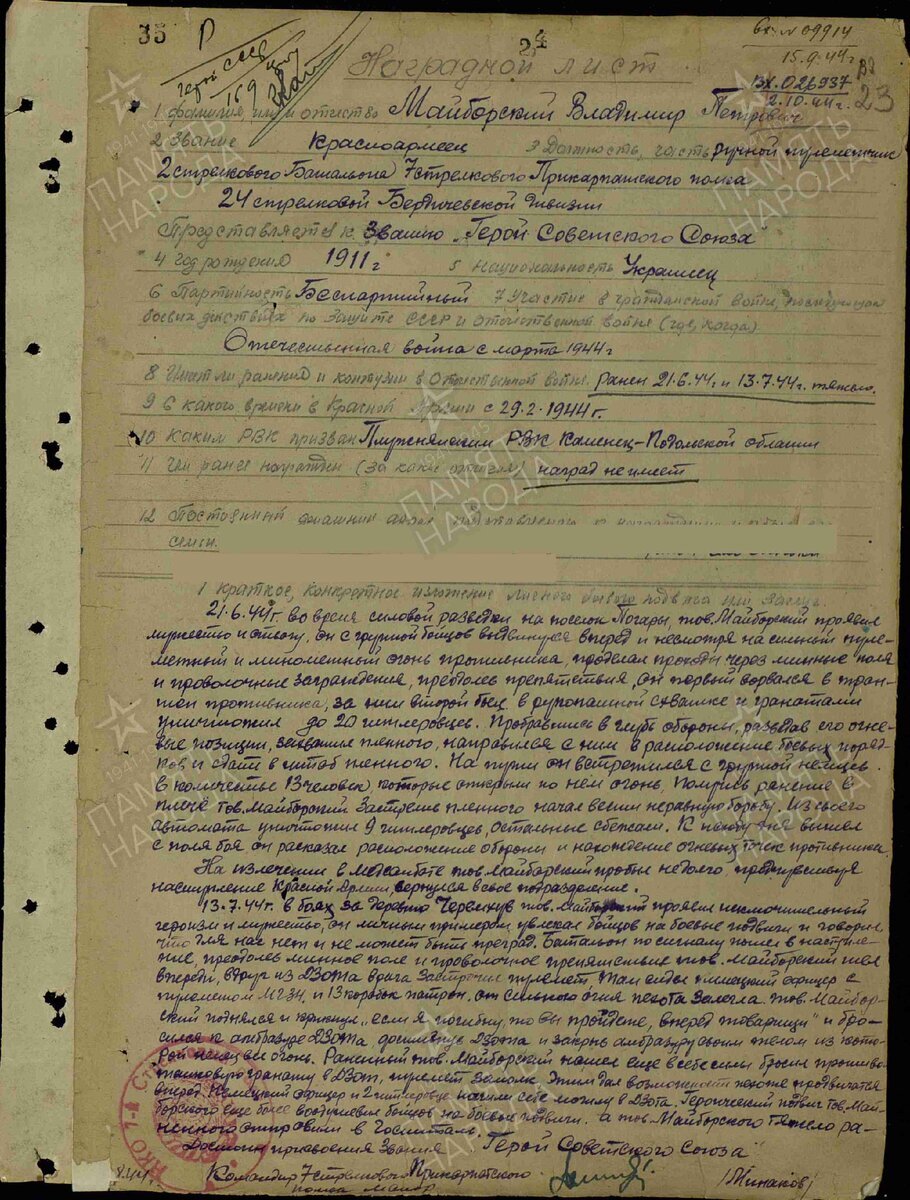 35 Р
24
вх. № 09914
15.9.44г
Вх. 026937
2.10.44г.
23
Герой СССР
Наградной лист
1 фамилия, имя и отчество Майборский Владимир Петрович
2 Звание Красноармеец 3 Должность, часть ручной пулеметчик
2 стрелкового Батальона 7 стрелкового Прикарпатского полка
24 стрелковой Бердичевской дивизии
Представляется к Званию „Герой Советского Союза
4 Год рождения 1911г 5 Национальность Украинец
6 Партийность Беспартийный 7 Участие в гражданской войне, последующих
боевых действиях по защите СССР и отечественной войне (где, когда)
Отечественная война с марта 1944г
8 Имеет ли ранения и контузии в Отечественной войне. ранен 21.6.44г. и 13.7.44г. тяжело.
9 С какого времени в Красной Армии с 29.2.1944г.
10 Каким РВК призван РВК Каменец-Подольской области
11 Чем ранее награжден (за какие отличия) наград не имеет
12 Постоянный домашний адрес
семьи.
1 краткое, конкретное изложение личного боевого подвига или заслуг.
21.6.44г. во время силовой разведки на поселок Погары, тов. Майборский проявил
мужество и отвагу. он с группой бойцов выдвинулся вперед и несмотря на сильный пуле-
метный и минометный огонь противника, проделал проходы через минные поля
и проволочные заграждения, преодолев препятствия, он первый ворвался в тран-
шеи противника, за ним второй боец. в рукопашной схватке и гранатами
уничтожил до 20 гитлеровцев. Пробравшись в глубь обороны, разведав его огне-
вые позиции, захватил пленного, направился с ним в расположение боевых поряд-
ков и сдать в штаб пленного. На пути он встретился с группой немцев
в количестве 13 человек, которые открыли по нем огонь, Получив ранение в
плечо тов. Майборский Застрелив пленного начал вести неравную борьбу. Из своего
автомата уничтожил 9 гитлеровцев, остальные сбежали. К исходу дня вышел
с поля боя он расказал расположение обороны и нахождение огневых точек противника
На излечении в медсанбате тов. Майборский пробыл недолго, предчувствуя
наступление Красной Армии вернулся в свое подразделение.
13.7.44г. в боях за деревню Червехув тов. Майборский проявил исключительный
героизм и мужество, он личным примером увлекал бойцов на боевые подвиги и говорил,
что для нас нет и не может быть преград. Батальон по сигналу пошел в наступле-
ние, преодолев минное поле и проволочное препятствие тов. Майборский шел
впереди, вдруг из ДЗОТа врага Застрочил пулемет, Там сидел немецкий офицер с
пулеметом МГ34 и 13 коробок патрон, от сильного огня пехота залегла. тов. Майбор-
ский поднялся и крикнул „если я погибну, то вы пройдете, вперед товарищи" и бро-
сился к амбразуре ДЗОТа, ДЗОТа и закрыв амбразуру своим телом из кото-
рой немец вел огонь. Раненный тов. Майборский нашел еще в себе силы бросил противо-
танковую гранату в ДЗОТ, пулемет замолк. Этим дал возможность пехоте продвигаться
вперед. Немецкий офицер и 2 гитлеровца нашли себе могилу в ДЗОТа. Героический подвиг тов. Май-
борского еще более воодушевил бойцов на боевые подвиги. а тов. Майборского тяжело ра-
ненного отправили в Госпиталь.
Достоин присвоения Звания „Герой Советского Союза"
Командир 7 стрелкового Прикарпатского
полка майор Минаков)
НКО 7-й
ПАМЯТЬ НАРОДА
1941-1945